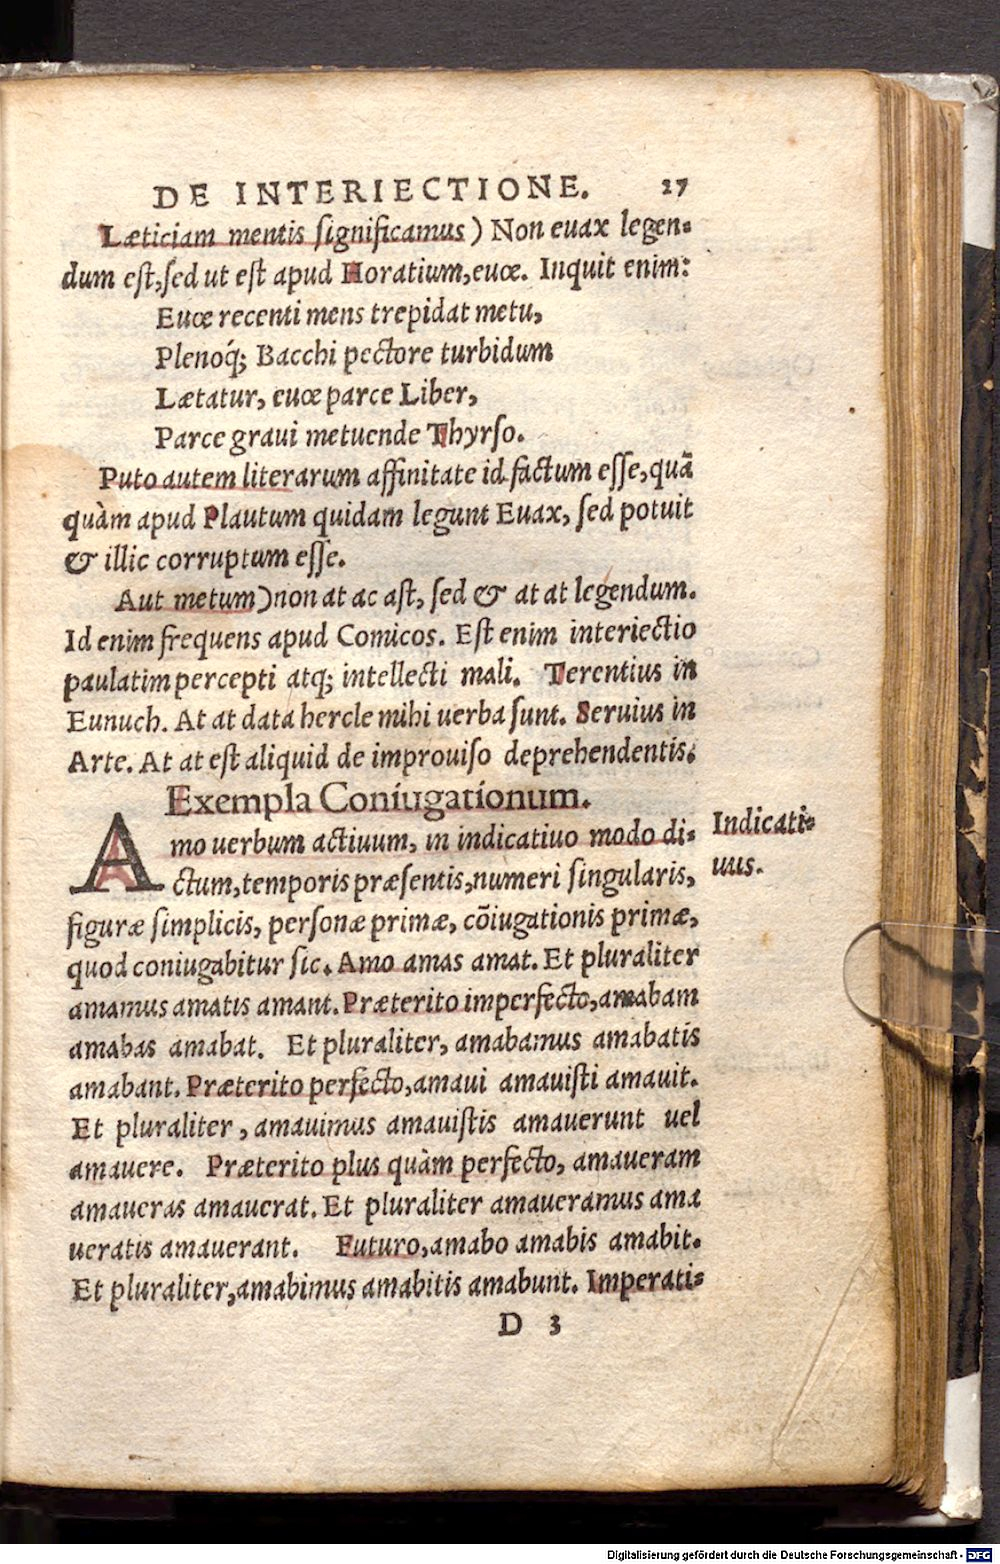 DE INTERIECTIONE. 27
Læticiam mentis significamus) Non euax legen-
dum est, sed ut est apud Horatium, euœ. Inquit enim:
Euœ recenti mens trepidat metu,
Plenoq́; Bacchi pectore turbidum
Lætatur, euœ parce Liber,
Parce graui metuende Thyrso.
Puto autem literarum affinitate id factum esse, quā
quàm apud Plautum quidam legunt Euax, sed potuit
& illic corruptum esse.
Aut metum) non at ac ast, sed & at at legendum.
Id enim frequens apud Comicos. Est enim interiectio
paulatim percepti atq; intellecti mali. Terentius in
Eunuch. At at data hercle mihi uerba sunt. Seruius in
Arte. At at est aliquid de improuiso deprehendentis.
Exempla Coniugationum.
Amo uerbum actiuum, in indicatiuo modo di-
Indicati-
uus.
ctum, temporis præsentis, numeri singularis,
figuræ simplicis, personæ primæ, cōiugationis primæ,
quod coniugabitur sic. Amo amas amat. Et pluraliter
amamus amatis amant. Præterito imperfecto, amabam
amabas amabat. Et pluraliter, amabamus amabatis
amabant. Præterito perfecto, amaui amauisti amauit.
Et pluraliter, amauimus amauistis amauerunt uel
amauere. Præterito plus quàm perfecto, amaueram
amaueras amauerat. Et pluraliter amaueramus ama
ueratis amauerant. Futuro, amabo amabis amabit.
Et pluraliter, amabimus amabitis amabunt. Imperati-
D 3
Digitalisierung gefördert durch die Deutsche Forschungsgemeinschaft - DFG